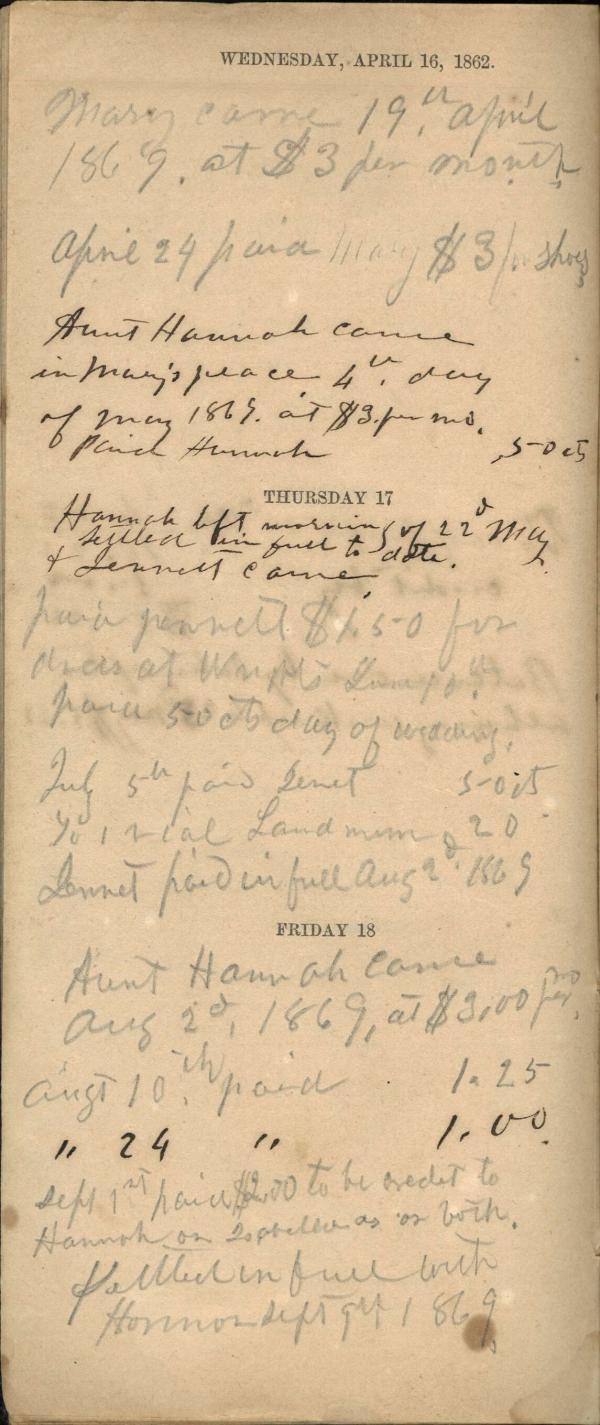 WEDNESDAY, APRIL 16, 1862.
Mary came 19th april
1869. at $3 per month
April 24 paid Mary $3 for shoes
Aunt Hannah came
in Mary's place 4th. day
of may 1869. at $3. per mo.
Paid Hannah ,50 cts
THURSDAY 17
Hannah left morning of 22d May
settled in full to date.
& Jennett came
paid Jennett $1.50 for
dress at Wrights
paid 50 cts day of wedding.
July 5th paid Jenet 50 cts
20
Jennet paid in full Aug 2d. 1869
FRIDAY 18
Aunt Hannah came
Aug 2d, 1869, at $3,00 per mo.
Augt 10th. paid 1.25
" 24 " 1.00.
Sept 1st paid $2.00 to be credet to
Hannah or Isabella as or both.
Settled in full with
Hannah Sept 9th 1869.